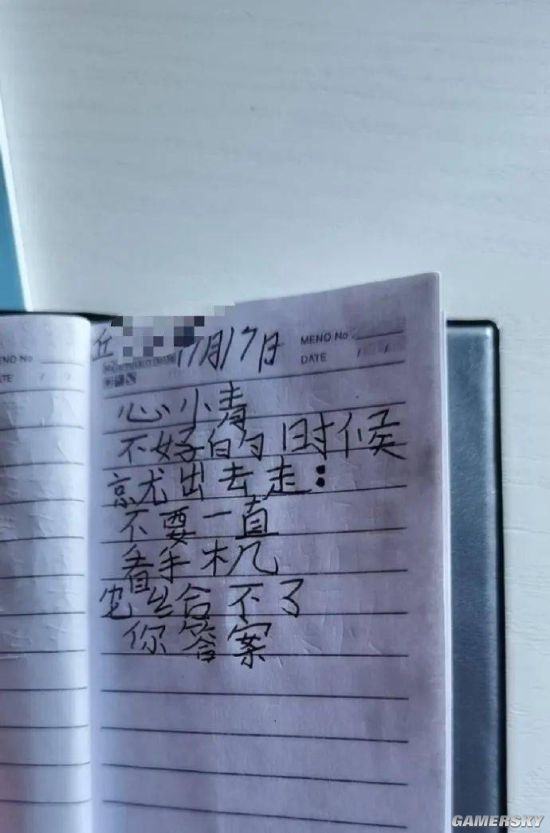 MENO No
TE / /
丘
11月17日
MENO No.
DATE / /
心小青
不好的时候
就出去走:
不要一直
看手机
它给不了
你答案
GAMERSKY